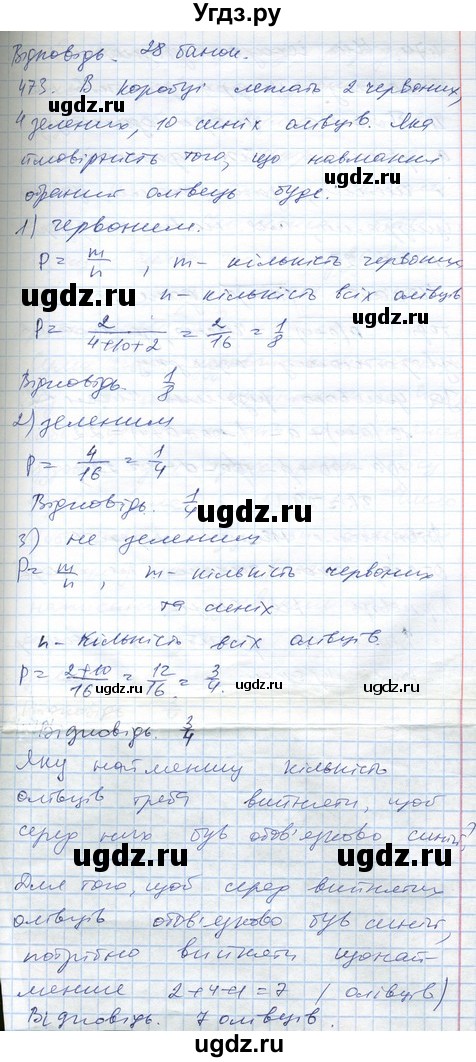 Угдз.ру
Відповідь. 28 банок.
473. В коробці лежать 2 червоних,
4 зелених, 10 синіх олівців. Яка
ймовірність того, що навмання
обраний олівець буде.
1) червоним.
P = m/n, m - кількість червоних
n - кількість всіх олівців
P = 2/(4+10+2) = 2/16 = 1/8
Відповідь. 1/8
2) зеленим
P = 4/16 = 1/4
Відповідь. 1/4
3) не зеленим
P = m/n, m - кількість червоних
та синіх
n - кількість всіх олівців.
P = (2+10)/16 = 12/16 = 3/4.
Відповідь. 3/4
Яку найменшу кількість
олівців треба вийняти, щоб
серед них був обов'язково синій?
Для того, щоб серед вийнятих
олівців обов'язково був синій,
потрібно вийняти щонай-
менше 2+4+1=7 (олівців)
Відповідь. 7 олівців.
ugdz.ru
ugdz.ru
ugdz.ru
ugdz.ru
ugdz.ru
ugdz.ru
ugdz.ru
ugdz.ru
ugdz.ru
ugdz.ru
ugdz.ru
ugdz.ru
ugdz.ru
ugdz.ru